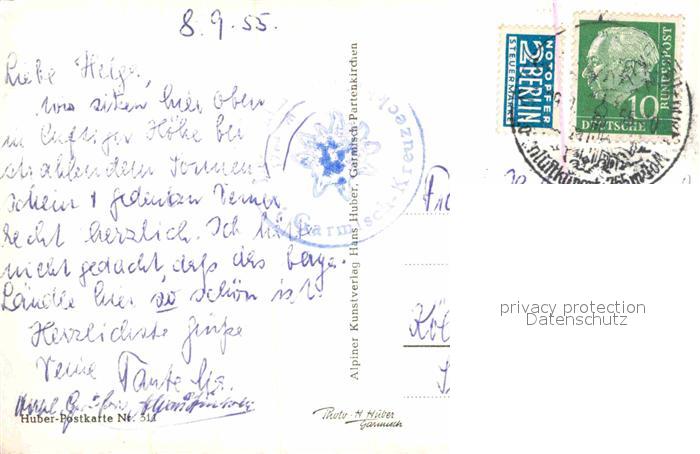 8.9.55.
Liebe Helga,
wir sitzen hier oben
in luftiger Höhe bei
strahlendem Sonnen-
schein & gedenken Deiner
recht herzlich. Ich hätte
nicht gedacht, daß das
Ländle hier so schön ist.
Herzlichste Grüße
Deine Tante
Huber-Postkarte Nr. 311
Alpiner Kunstverlag Hans Huber, Garmisch-Partenkirchen
Garmisch-Kreuzeck
Photo-H. Huber
Garmisch
NOTOPFER
2 BERLIN
STEUERMARKE
10
DEUTSCHE
BUNDESPOST
Köl
privacy protection
Datenschutz